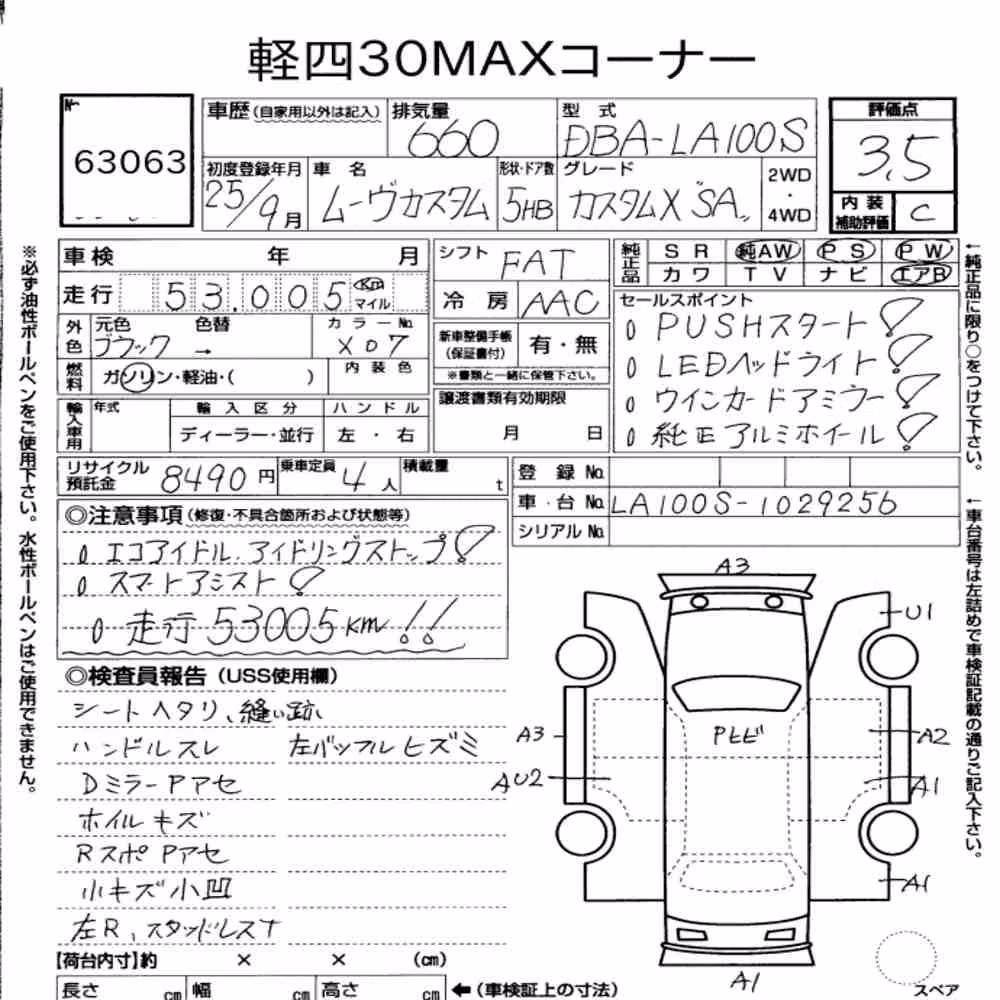 軽四30MAXコーナー
No.
63063
車歴(自家用以外は記入)
排気量
660
型式
DBA-LA100S
評価点
3.5
初度登録年月
25/9月
車名
ムーヴカスタム
形状・ドア数
5HB
グレード
カスタムX"SA"
2WD
・
4WD
内装
補助評価
C
車検 年 月
走行 53.005 Km マイル
シフト FAT
冷房 AAC
純正品
SR 純AW PS PW
カワ TV ナビ エアB
外色
元色 色替
ブラック →
カラーNo.
X07
燃料
ガソリン・軽油・( )
内装色
新車整備手帳
(保証書付)
有・無
※書類と一緒に保管下さい。
セールスポイント
PUSHスタート!
LEDヘッドライト!
ウインカードアミラー!
純正アルミホイール!
輸入車用
年式
輸入区分
ディーラー・並行
ハンドル
左・右
譲渡書類有効期限
月 日
リサイクル
預託金
8490円
乗車定員
4人
積載量
t
登録No.
車台No. LA100S-1029256
シリアルNo.
◎注意事項(修復・不具合箇所および状態等)
エコアイドル.アイドリングストップ!
スマートアシスト!
走行53005km!!
◎検査員報告(USS使用欄)
シートヘタリ、縫い跡
ハンドルスレ 左バッフルヒズミ
DミラーPアセ
ホイルキズ
RスポPアセ
小キズ小凹
左R、スタッドレスT
A3
U1
A3
Pモヒ"
A2
AU2
A1
A1
A1
スペア
【荷台内寸】約 × × (cm)
長さ cm 幅 cm 高さ cm ←(車検証上の寸法)
※必ず油性ボールペンをご使用下さい。水性ボールペンはご使用できません。
←純正品に限り○をつけて下さい。
←車台番号は左詰めで車検証記載の通りご記入下さい。